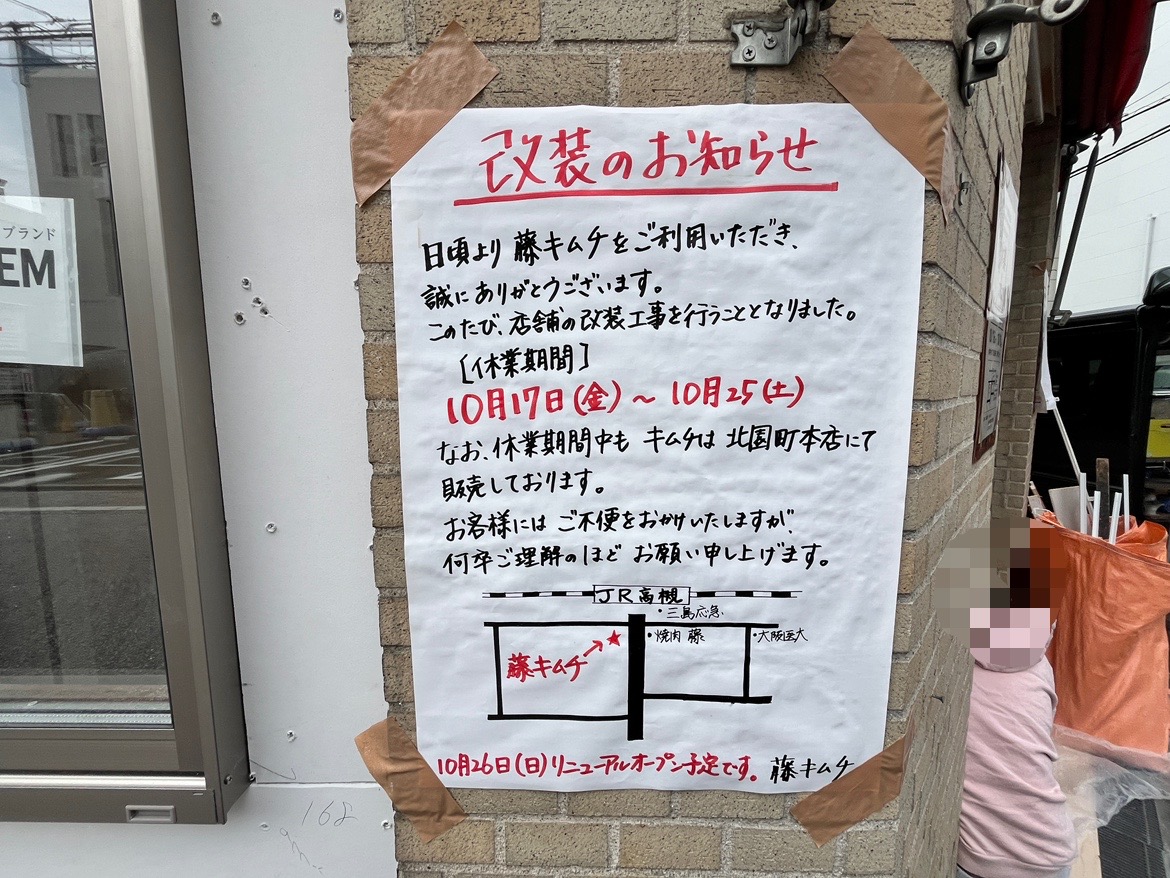 改装のお知らせ
日頃より 藤キムチをご利用いただき、
誠にありがとうございます。
このたび、店舗の改装工事を行うこととなりました。
[休業期間]
10月17日(金)～10月25(土)
なお、休業期間中も キムチは 北園町本店にて
販売しております。
お客様には ご不便をおかけいたしますが、
何卒ご理解のほど お願い申し上げます。
JR高槻
・三島応急
・焼肉 藤
・大阪医大
藤キムチ→★
10月26日(日)リニューアルオープン予定です。 藤キムチ
ブランド
EM
168